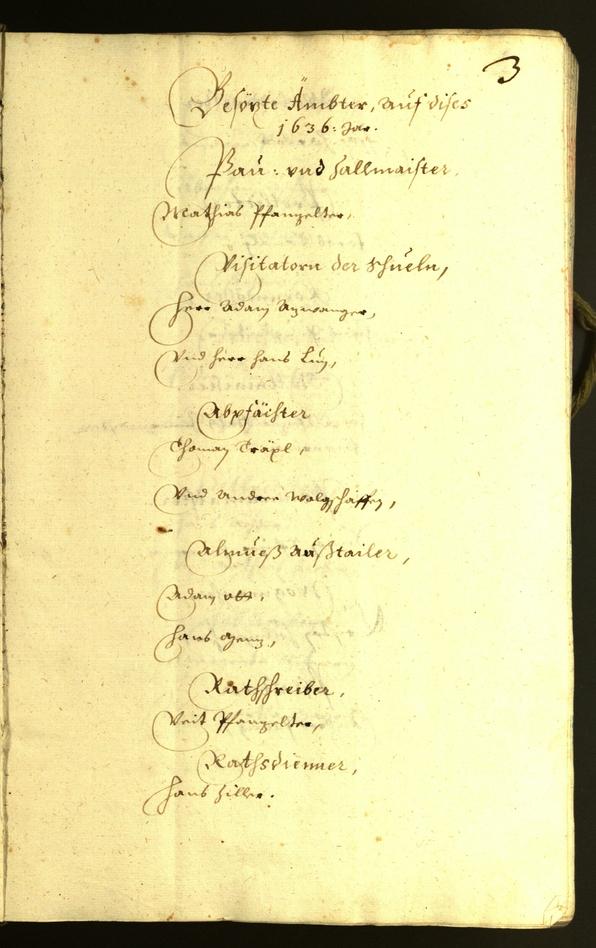 3
Besözte Ämbter, auf dises
1636: Jar.
Pau: vnd Fallmaister.
Mathias Pfanzelter,
Visitatorn der Schueln,
Herr Adam
Vnd Herr Hans
Abpfächter
Thoman Träxl,
Vnd Andree Wolgschaffen,
Almueß Außtailer,
Adam Ott,
Hans
Rathschreiber,
Veit Pfanzelter,
Rathsdienner,
Hans Ziller.